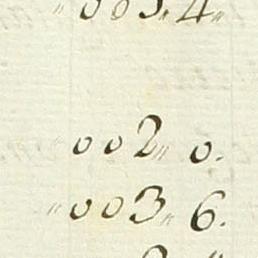 " 003 " 4 "
" 002 " 0.
" 003 " 6.